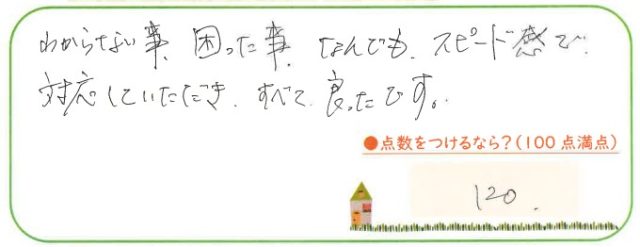 わからない事、困った事、なんでも、スピード感で
対応していただき、すべて良ったです。
●点数をつけるなら?(100点満点)
120.